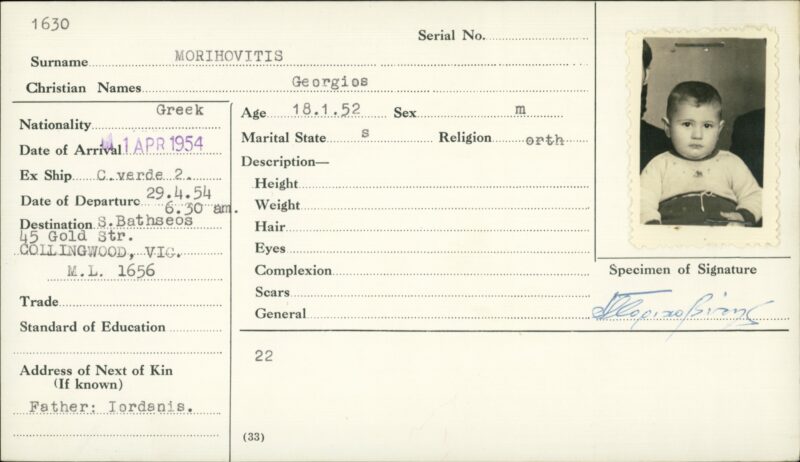 1630
Serial No.
Surname MORIHOVITIS
Christian Names Georgios
Nationality Greek
Date of Arrival 1 APR 1954
Ex Ship C.verde 2.
Date of Departure 29.4.54
6.30 am.
Destination S.Bathseos
45 Gold Str.
COLLINGWOOD, VIC.
M.L. 1656
Trade
Standard of Education
Address of Next of Kin
(If known)
Father: Iordanis.
Age 18.1.52 Sex m
Marital State s Religion orth
Description—
Height
Weight
Hair
Eyes
Complexion
Scars
General
22
(33)
Specimen of Signature